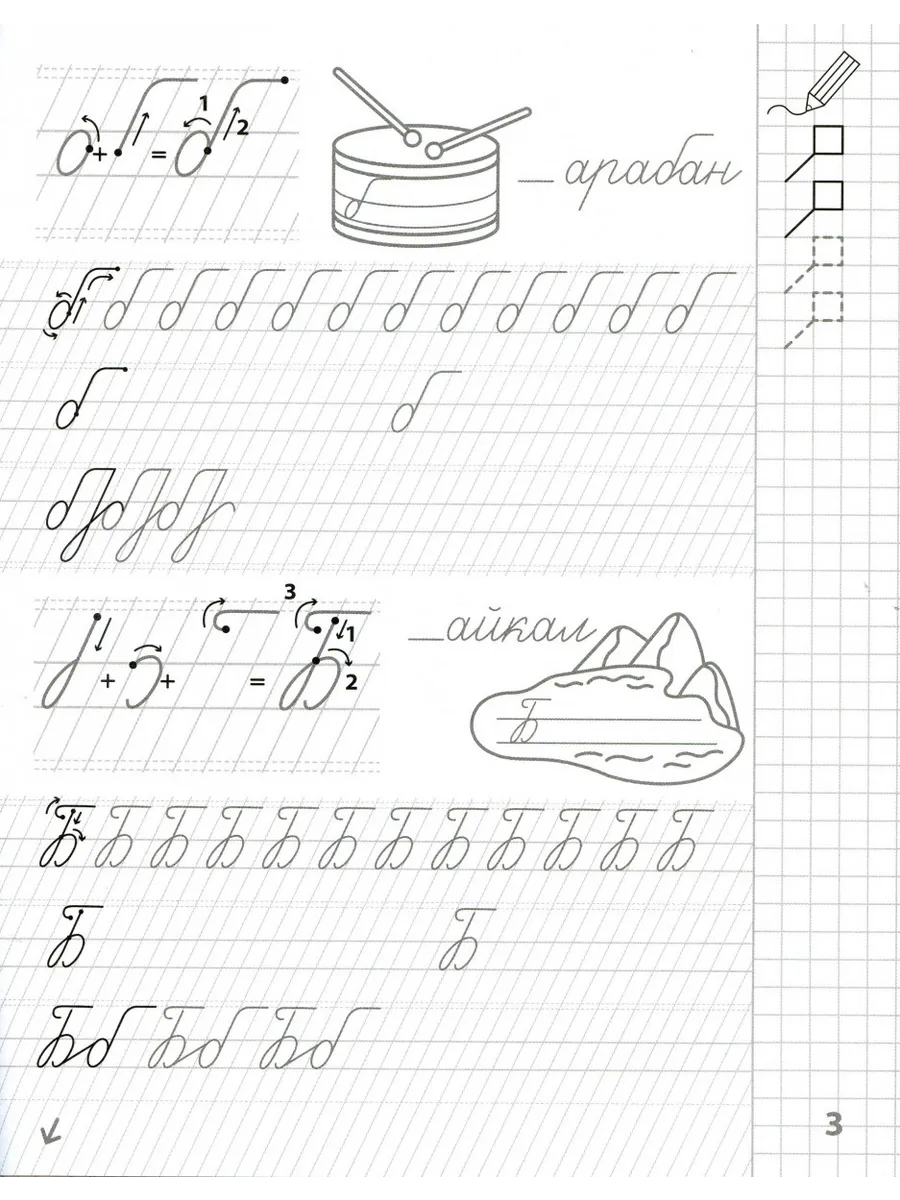 1
+ = 2
_арабан
б
б б б б б б б б б б б б
б б
ббб
3
1
+ + = 2
_айкал
Б
Б Б Б Б Б Б Б Б Б Б Б Б
Б Б
Бб Бб Бб
3